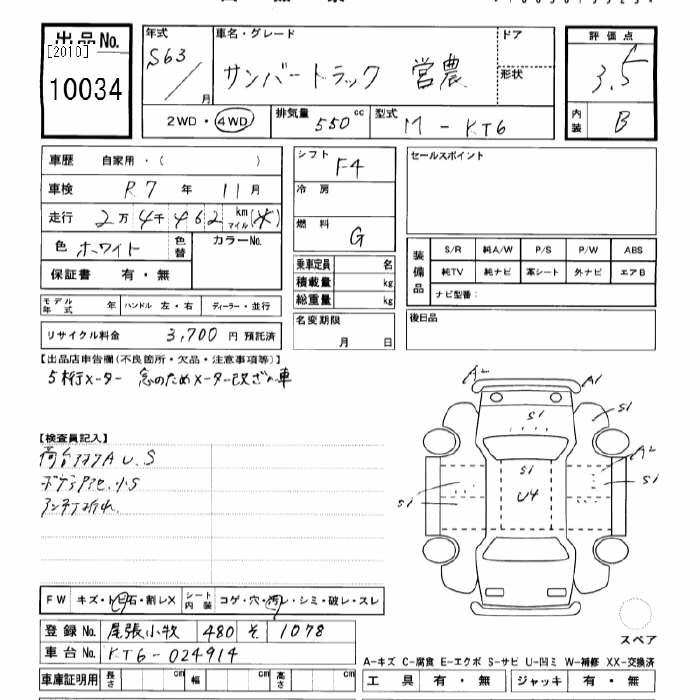 出品No.
[2010]
10034
年式 S63 / 月
車名・グレード サンバートラック 営農
ドア
形状
評価点 3.5
内装 B
2WD・4WD
排気量 550 cc
型式 M-KT6
車歴 自家用・( )
車検 R7年 11月
走行 2万4千462 km マイル(*)
色 ホワイト 色替 カラーNo.
保証書 有・無
モデル年式 年 ハンドル 左・右 ディーラー・並行
リサイクル料金 3,700 円 預託済
シフト F4
冷房
燃料 G
乗車定員 名
積載量 kg
総重量 kg
名変期限 月 日
セールスポイント
装備品 S/R 純A/W P/S P/W ABS
純TV 純ナビ 革シート 外ナビ エアB
ナビ型番:
後日品
【出品店申告欄(不良箇所・欠品・注意事項等)】
5桁メーター 念のためメーター改ざん車
【検査員記入】
荷台 A U.S
小S
アンテナ折れ
A2 A1
S1 S1
A2
S1 S1
S1 U4
スペア
FW キズ・トビ石・割レX シート内装 コゲ・穴・汚レ・シミ・破レ・スレ
登録No. 尾張小牧 480 そ 1078
車台No. KT6-024914
車庫証明用 長さ cm 幅 cm 高さ cm
A-キズ C-腐食 E-エクボ S-サビ U-凹ミ W-補修 XX-交換済
工具 有・無 ジャッキ 有・無